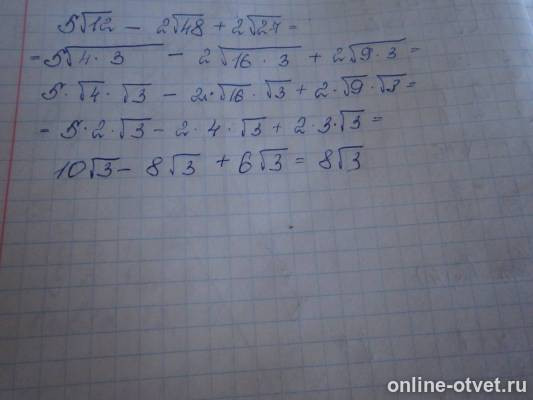 5√12 − 2√48 + 2√27 =
= 5√4·3 − 2√16·3 + 2√9·3 =
5·√4·√3 − 2·√16·√3 + 2·√9·√3 =
= 5·2·√3 − 2·4·√3 + 2·3·√3 =
10√3 − 8√3 + 6√3 = 8√3
online-otvet.ru